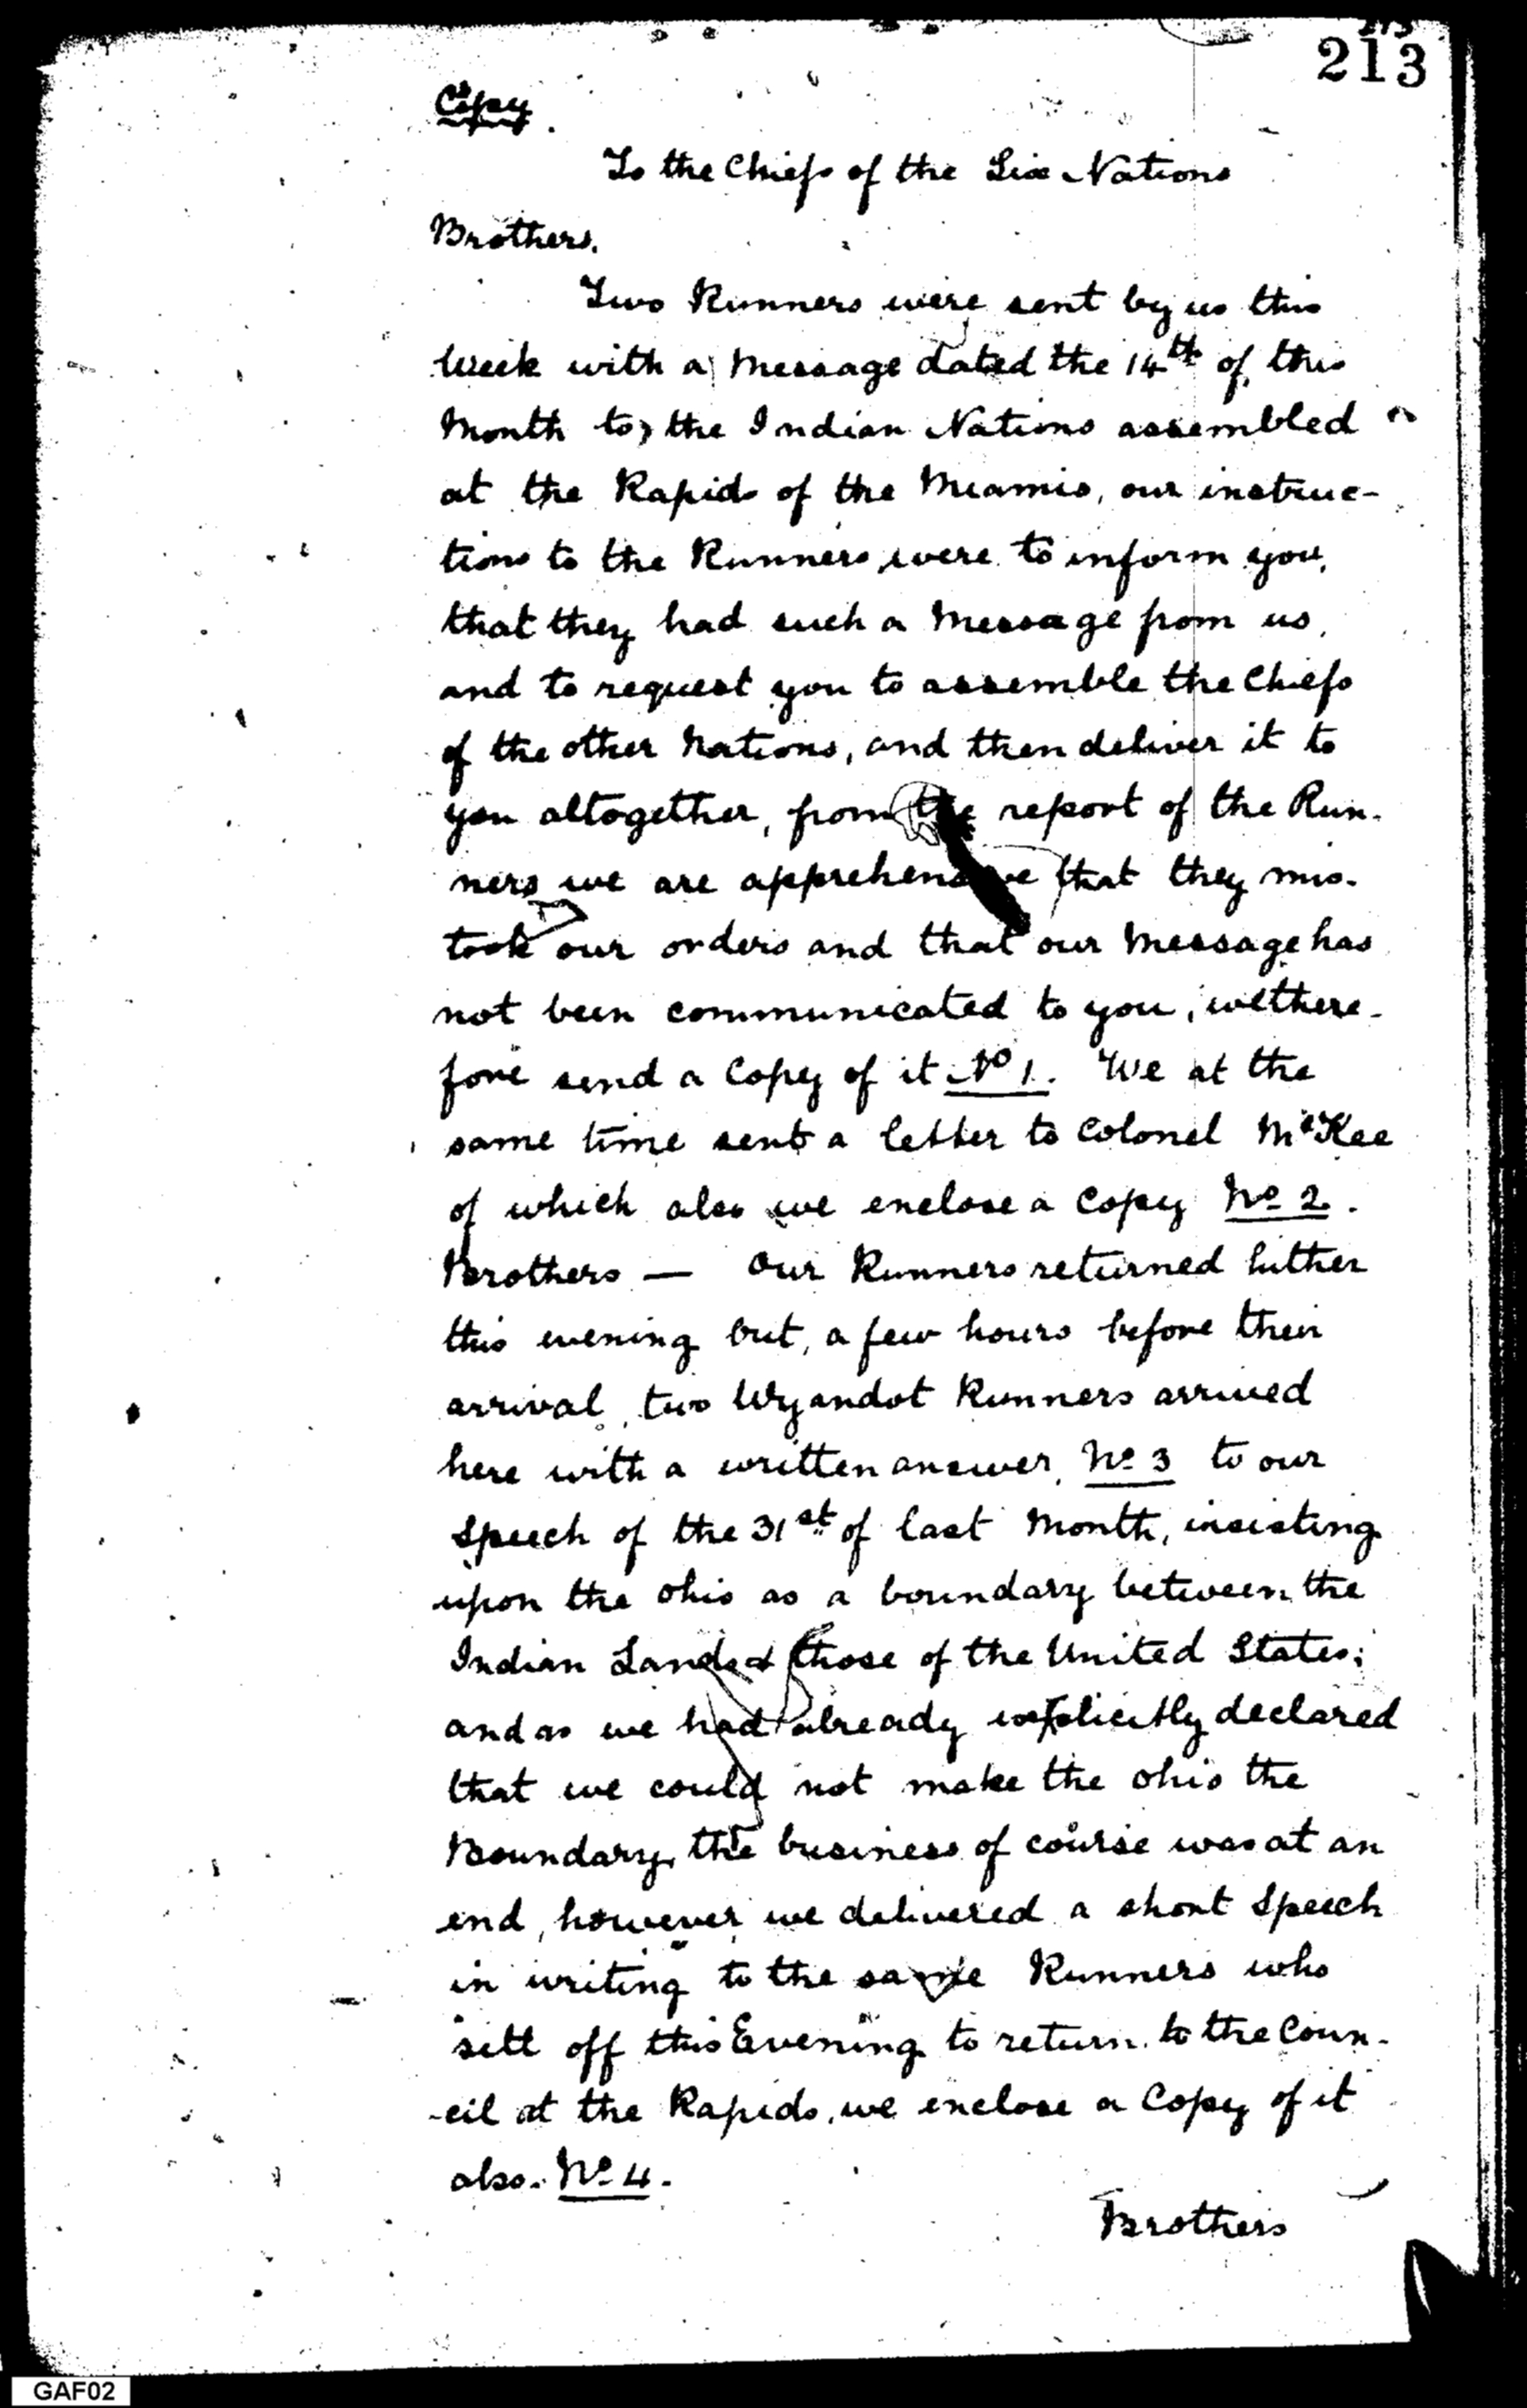 213
Copy.
To the Chiefs of the Six Nations
Brothers.
Two Runners were sent by us this
Week with a Message dated the 14th of this
Month to the Indian Nations assembled
at the Rapids of the Miamis, our instruc-
tions to the Runners were to inform you,
that they had such a Message from us,
and to request you to assemble the Chiefs
of the other Nations, and then deliver it to
you altogether, from the report of the Run-
ners we are apprehensive that they mis-
took our orders and that our Message has
not been communicated to you, we there-
fore send a Copy of it No 1. We at the
same time sent a letter to Colonel McKee
of which also we enclose a Copy No 2.
Brothers — Our Runners returned hither
this evening but, a few hours before their
arrival, two Wyandot Runners arrived
here with a written answer, No 3 to our
Speech of the 31st of last Month, insisting
upon the Ohio as a boundary between the
Indian Lands & those of the United States;
and as we had already explicitly declared
that we could not make the Ohio the
Boundary, the business of course was at an
end, however we delivered a short Speech
in writing to the same Runners who
sett off this Evening to return to the Coun-
-cil at the Rapids, we enclose a Copy of it
also. No 4.
Brothers
GAF02